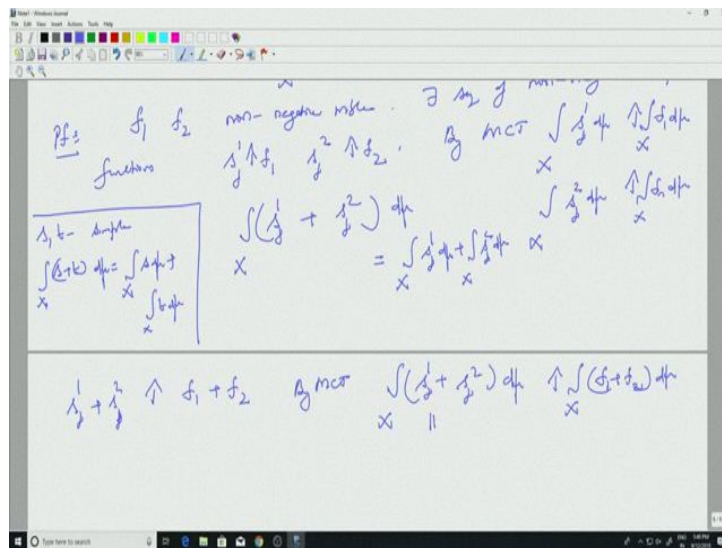 Note1 - Windows Journal
File Edit View Insert Actions Tools Help
Pf: f₁ f₂ non-negative mble. ∃ seq of non-neg
functions s_j¹ ↑ f₁ s_j² ↑ f₂. By MCT ∫_X s_j¹ dμ ↑ ∫_X f₁ dμ
∫_X s_j² dμ ↑ ∫_X f₂ dμ
∫_X (s_j¹ + s_j²) dμ
= ∫_X s_j¹ dμ + ∫_X s_j² dμ
s, t - simple
∫_X (s+t) dμ = ∫_X s dμ +
∫_X t dμ
s_j¹ + s_j² ↑ f₁ + f₂ By MCT ∫_X (s_j¹ + s_j²) dμ ↑ ∫_X (f₁ + f₂) dμ
||
Type here to search
ENG 5:48 PM